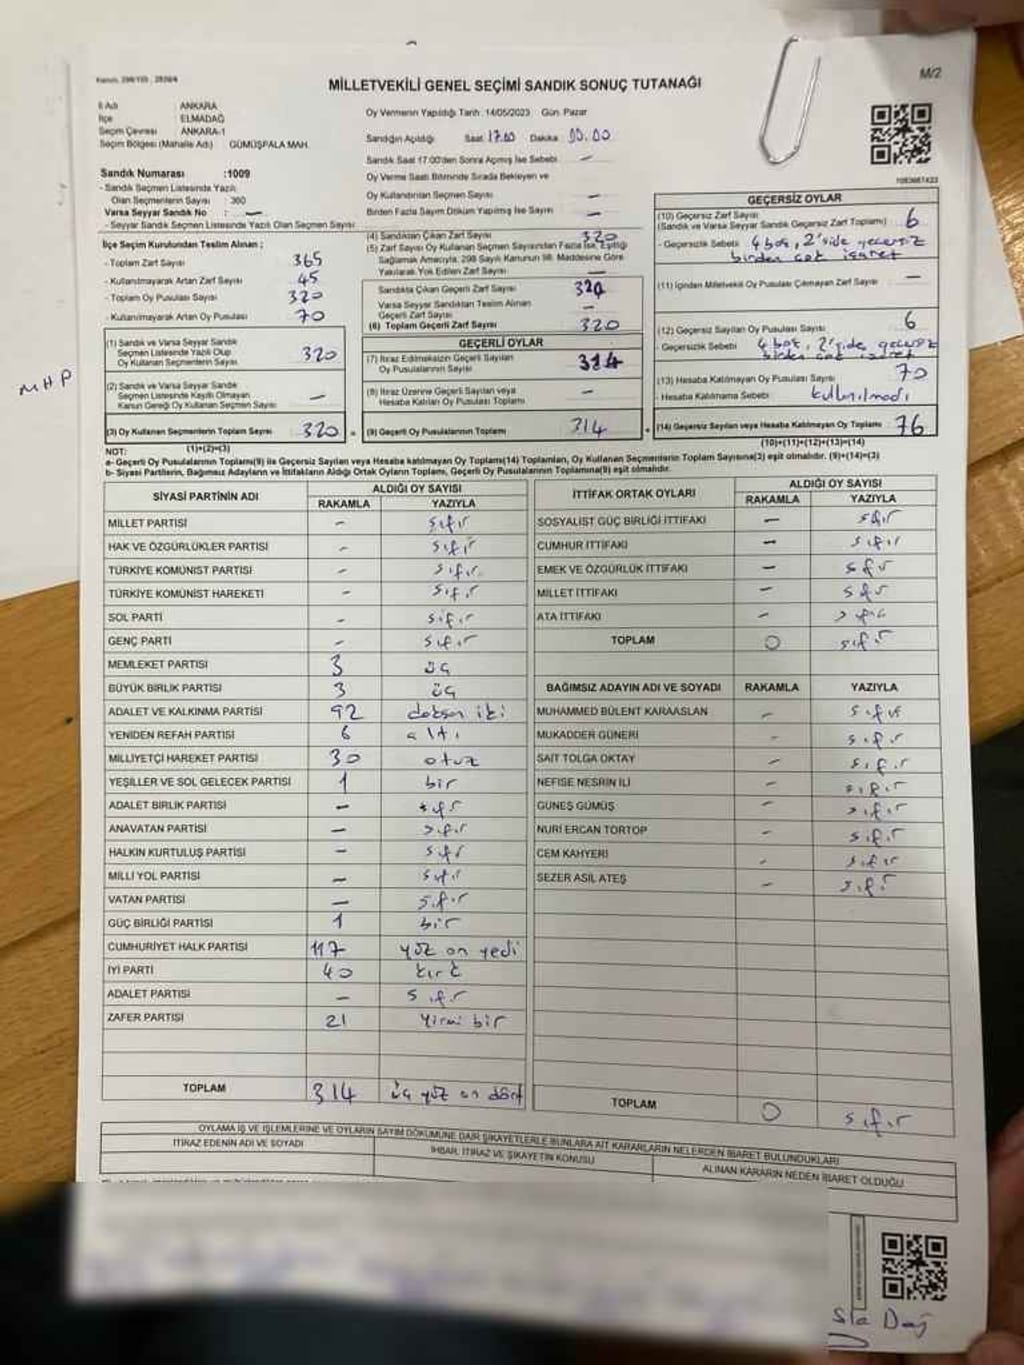 Kanun: 298/105 , 2839/4
M/2
MİLLETVEKİLİ GENEL SEÇİMİ SANDIK SONUÇ TUTANAĞI
İl Adı : ANKARA
İlçe : ELMADAĞ
Seçim Çevresi : ANKARA-1
Seçim Bölgesi (Mahalle Adı) : GÜMÜŞPALA MAH.
Sandık Numarası :1009
- Sandık Seçmen Listesinde Yazılı
Olan Seçmenlerin Sayısı : 360
Varsa Seyyar Sandık No : —
- Seyyar Sandık Seçmen Listesinde Yazılı Olan Seçmen Sayısı
Oy Vermenin Yapıldığı Tarih :14/05/2023 Gün: Pazar
Sandığın Açıldığı Saat: 17.00 Dakika: 00.00
Sandık Saat 17:00'den Sonra Açmış İse Sebebi : —
Oy Verme Saati Bitiminde Sırada Bekleyen ve
Oy Kullandırılan Seçmen Sayısı : —
Birden Fazla Sayım Döküm Yapılmış İse Sayısı : —
İlçe Seçim Kurulundan Teslim Alınan ;
- Toplam Zarf Sayısı : 365
- Kullanılmayarak Artan Zarf Sayısı : 45
- Toplam Oy Pusulası Sayısı : 320
- Kullanılmayarak Artan Oy Pusulası : 70
(1) Sandık ve Varsa Seyyar Sandık
Seçmen Listesinde Yazılı Olup
Oy Kullanan Seçmenlerin Sayısı : 320
(2) Sandık ve Varsa Seyyar Sandık
Seçmen Listesinde Kayıtlı Olmayan
Kanun Gereği Oy Kullanan Seçmen Sayısı : —
(3) Oy Kullanan Seçmenlerin Toplam Sayısı : 320
(1)+(2)=(3)
(4) Sandıktan Çıkan Zarf Sayısı : 320
(5) Zarf Sayısı Oy Kullanan Seçmen Sayısından Fazla İse, Eşitliği
Sağlamak Amacıyla, 298 Sayılı Kanunun 98. Maddesine Göre
Yakılarak Yok Edilen Zarf Sayısı : —
Sandıkta Çıkan Geçerli Zarf Sayısı : 320
Varsa Seyyar Sandıktan Teslim Alınan
Geçerli Zarf Sayısı : —
(6) Toplam Geçerli Zarf Sayısı : 320
GEÇERLİ OYLAR
(7) İtiraz Edilmeksizin Geçerli Sayılan
Oy Pusulalarının Sayısı : 314
(8) İtiraz Üzerine Geçerli Sayılan veya
Hesaba Katılan Oy Pusulası Toplamı : —
(9) Geçerli Oy Pusulalarının Toplamı : 314
GEÇERSİZ OYLAR
(10) Geçersiz Zarf Sayısı
(Sandık ve Varsa Seyyar Sandık Geçersiz Zarf Toplamı) : 6
- Geçersizlik Sebebi : 4 boş, 2'side geçersiz
birden çok işaret
(11) İçinden Milletvekili Oy Pusulası Çıkmayan Zarf Sayısı : —
(12) Geçersiz Sayılan Oy Pusulası Sayısı : 6
- Geçersizlik Sebebi : 4 boş, 2'side geçersiz
birden çok işaret
(13) Hesaba Katılmayan Oy Pusulası Sayısı : 70
- Hesaba Katılmama Sebebi : kullanılmadı
(14) Geçersiz Sayılan veya Hesaba Katılmayan Oy Toplamı : 76
(10)+(11)+(12)+(13)=(14)
MHP
NOT:
a- Geçerli Oy Pusulalarının Toplamı(9) ile Geçersiz Sayılan veya Hesaba katılmayan Oy Toplamı(14) Toplamları, Oy Kullanan Seçmenlerin Toplam Sayısına(3) eşit olmalıdır. (9)+(14)=(3)
b- Siyasi Partilerin, Bağımsız Adayların ve İttifakların Aldığı Ortak Oyların Toplamı, Geçerli Oy Pusulalarının Toplamına(9) eşit olmalıdır.
SİYASİ PARTİNİN ADI ALDIĞI OY SAYISI
RAKAMLA YAZIYLA
MİLLET PARTİSİ - sıfır
HAK VE ÖZGÜRLÜKLER PARTİSİ - sıfır
TÜRKİYE KOMÜNİST PARTİSİ - sıfır
TÜRKİYE KOMÜNİST HAREKETİ - sıfır
SOL PARTİ - sıfır
GENÇ PARTİ - sıfır
MEMLEKET PARTİSİ 3 üç
BÜYÜK BİRLİK PARTİSİ 3 üç
ADALET VE KALKINMA PARTİSİ 92 doksan iki
YENİDEN REFAH PARTİSİ 6 altı
MİLLİYETÇİ HAREKET PARTİSİ 30 otuz
YEŞİLLER VE SOL GELECEK PARTİSİ 1 bir
ADALET BİRLİK PARTİSİ - sıfır
ANAVATAN PARTİSİ - sıfır
HALKIN KURTULUŞ PARTİSİ - sıfır
MİLLİ YOL PARTİSİ - sıfır
VATAN PARTİSİ - sıfır
GÜÇ BİRLİĞİ PARTİSİ 1 bir
CUMHURİYET HALK PARTİSİ 117 yüz on yedi
İYİ PARTİ 40 kırk
ADALET PARTİSİ - sıfır
ZAFER PARTİSİ 21 yirmi bir
TOPLAM 314 üç yüz on dört
İTTİFAK ORTAK OYLARI ALDIĞI OY SAYISI
RAKAMLA YAZIYLA
SOSYALİST GÜÇ BİRLİĞİ İTTİFAKI - sıfır
CUMHUR İTTİFAKI - sıfır
EMEK VE ÖZGÜRLÜK İTTİFAKI - sıfır
MİLLET İTTİFAKI - sıfır
ATA İTTİFAKI - sıfır
TOPLAM 0 sıfır
BAĞIMSIZ ADAYIN ADI VE SOYADI RAKAMLA YAZIYLA
MUHAMMED BÜLENT KARAASLAN - sıfır
MUKADDER GÜNERİ - sıfır
SAİT TOLGA OKTAY - sıfır
NEFİSE NESRİN İLİ - sıfır
GÜNEŞ GÜMÜŞ - sıfır
NURİ ERCAN TORTOP - sıfır
CEM KAHYERİ - sıfır
SEZER ASİL ATEŞ - sıfır
TOPLAM 0 sıfır
OYLAMA İŞ VE İŞLEMLERİNE VE OYLARIN SAYIM DÖKÜMÜNE DAİR ŞİKAYETLERLE BUNLARA AİT KARARLARIN NELERDEN İBARET BULUNDUKLARI
İTİRAZ EDENİN ADI VE SOYADI İHBAR, İTİRAZ VE ŞİKAYETİN KONUSU ALINAN KARARIN NEDEN İBARET OLDUĞU